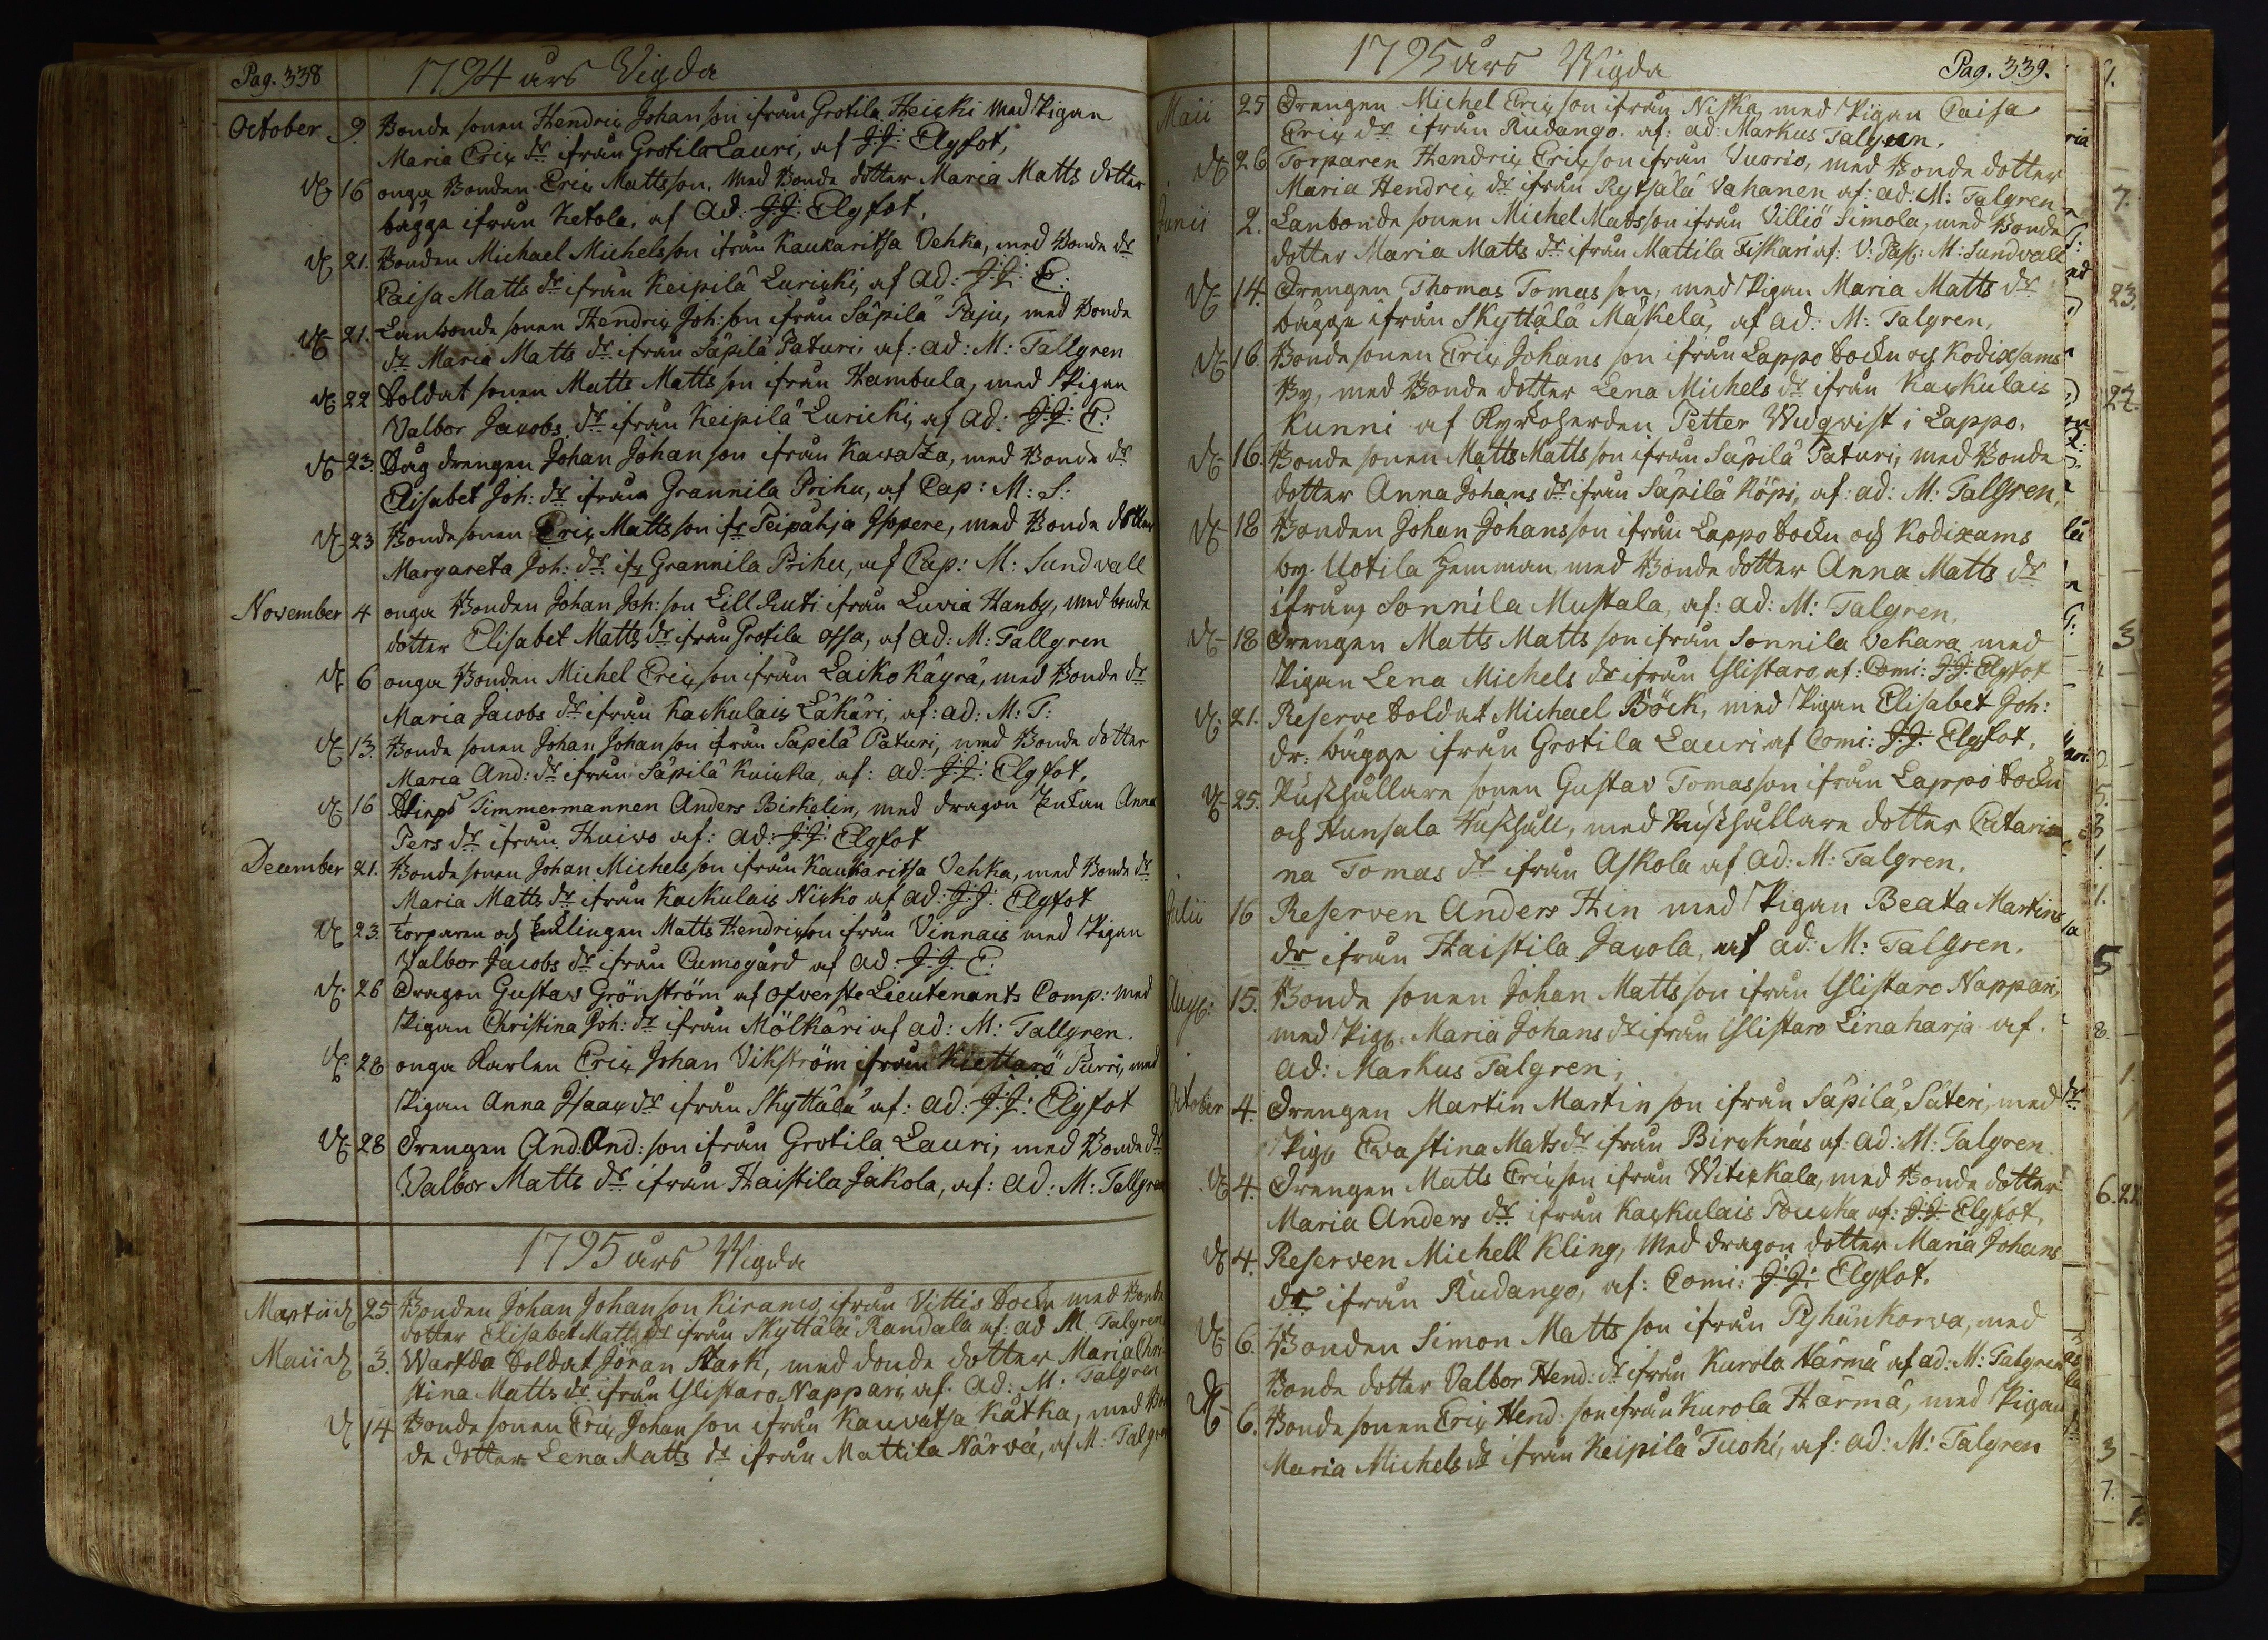 Pag. 338
1794 års Vigda
October 9. Bonde sonen Hendrix Johanson ifrån Grotila Heicki med Pigan
Maria Erix dr ifrån Grotila Lauri, af J:J: Elgfot,
16 onga Bonden Erix Mattsson, med Bonde dotter Maria Matts dotter
bägge ifrån Ketola, af Ad: J:J: Elgfot,
21. Bonden Michael Michelsson ifrån Kaukaritsa Vehka, med Bonde dr
Caisa Matts dr ifrån Keipilä Luricki, af Ad: J:J: E:
21. Lanbonde sonen Hendrix Joh:son ifrån Säpilä Paju, med Bonde
dr Maria Matts dr ifrån Säpilä Paturi, af: ad: M: Tallgren
22 Soldat sonen Matts Mattsson ifrån Hambula, med Pigan
Valbor Jacobs dr ifrån Keipilä Luricki, af Ad: J:J: E:
23. Såg drengen Johan Johanson ifrån Kawatza, med Bonde dr
Elisabet Joh: dr ifrån Grannila Prihu, af Cap: M: S:
23 Bonde sonen Erix Mattsson ifr Peipåhja Ispere, med Bonde dotter
Margareta Joh: dr ifr Grannila Prihu, af Cap: M: Sundvall
November 4 onga Bonden Johan Joh:son Lill Ruti ifrån Luvia Hanby, med bonde
dotter Elisabet Matts dr ifrån Grotila Ossa, af ad: M: Tallgren
6 onga Bonden Michel Erixson ifrån Laiko Käyrä, med Bonde dr
Maria Jacobs dr ifrån Kackulais Läkäri, af: ad: M: T:
13. Bonde sonen Johan Johanson ifrån Säpilä Paturi, med Bonde dotter
Maria And: dr ifrån Säpilä Knicka, af: ad: J:J: Elgfot,
16 Timmermannen Anders Birkelin, med dragon Enkan Anna
Pers dr ifrån Huiwo af: ad: J:J: Elgfot
December 21. Bonde sonen Johan Michelsson ifrån Kaukaritsa Vehka, med Bonde dr
Maria Matts dr ifrån Kackulais Nicko af ad: J:J: Elgfot
23. Torparen och Enklingen Matts Hendrixson ifrån Vinnais med Pigan
Valbor Jacobs dr ifrån Cumogård af ad: J:J: E:
26 Dragon Gustav Grönström af Öfverste Lieutenants Comp: med
Pigan Christina Joh: dr ifrån Mölkäri af ad: M: Tallgren.
28 onga Karlen Erix Johan Vikström ifrån Kiettarö Purri, med
Pigan Anna Isaax dr ifrån Skyttälä af: ad: J:J: Elgfot
28 Drengen And: And: son ifrån Grotila Lauri, med Bonde dr
Valbor Matts dr ifrån Haistila Jakola, af: ad: M: Tallgren
1795 års Wigda
Martii 25 Bonden Johan Johanson Kiramo ifrån Vittis Sockn med Bonde
dotter Elisabet Matts dr ifrån Skyttälä Randala af: ad M. Talgren
Maii 3. Warfda Soldat Jöran Stark, med bonde dotter Maria Chri
stina Matts dr ifrån Ylistaro Nappari, af. ad: M. Talgren
14 Bonde sonen Erix Johanson ifrån Kauvatsa Kätkä, med Bon
de dotter Lena Matts dr ifrån Mattila Närwä, af M: Talgren
1795 års Wigda
Pag. 339.
Maii 25 Drengen Michel Erixson ifrån Niska, med Pigan Caisa
Erix dr ifrån Rudango. af: ad: Markus Talgren.
26 Torparen Hendrix Erixson ifrån Vuorio, med Bonde dotter
Maria Hendrix dr ifrån Rytsälä Vahanen af: ad: M: Talgren
Junii 2. Lanbonde sonen Michel Matsson ifrån Villiö Simola, med Bonde
dotter Maria Matts dr ifrån Mattila Fiskari af: V: Past: M: Sundvall
14. Drengen Thomas Tomasson, med Pigan Maria Matts dr
bägge ifrån Skyttälä Mäkelä, af ad: M: Talgren,
16. Bonde sonen Erix Johansson ifrån Lappo Sockn och Kodixsams
By, med Bonde dotter Lena Michels dr ifrån Kackulais
Kunni af Kyrkoherden Petter Widqvist i Lappo.
16. Bonde sonen Matts Mattsson ifrån Säpilä Paturi, med Bonde
dotter Anna Johans dr ifrån Säpilä Röpi, af: ad: M: Talgren,
18 Bonden Johan Johansson ifrån Lappo Sockn och Kodixams
by. Uotila Hemman, med Bonde dotter Anna Matts dr
ifrån Sonnila Mustala, af: ad: M: Talgren.
18 Drengen Matts Mattsson ifrån Sonnila Vekara med
Pigan Lena Michels dr ifrån Ylistaro af: Comi: J:J: Elgfot
21. Reserve Soldat Michael Böck, med Pigan Elisabet Joh:
dr. bägge ifrån Grotila Lauri af Comi: J:J: Elgfot.
25. Rusthållare sonen Gustav Tomasson ifrån Lappo Sockn
och Hunsala Rusthåll, med Rusthållare dotter Catari
na Tomas dr ifrån Askola af Ad: M: Talgren.
Julii 16 Reserven Anders Hin med Pigan Beata Martins
dr ifrån Haistila Jacola, af ad: M: Talgren.
Aug: 15. Bonde sonen Johan Mattsson ifrån Ylistaro Nappari,
med Pig: Maria Johans dr ifrån Ylistaro Linaharja af.
Ad: Markus Talgren;
October 4. Drengen Martin Martinson ifrån Säpilä, Säteri, med
Pig: Eva stina Mats dr ifrån Bircknäs af: ad: M: Talgren.
4. Drengen Matts Erixson ifrån Witickala, med Bonde dotter
Maria Anders dr ifrån Kackulais Poucka af: J:J: Elgfot,
4. Reserven Michell Kling, med dragon dotter Maria Johans
dr ifrån Rudango, af: Comi: J:J: Elgfot.
6. Bonden Simon Mattsson ifrån Pyhänkorva, med
Bonde dotter Valbor Hend: dr ifrån Kurola Härmä af ad: M: Talgren
6. Bonde sonen Erix Hend: son ifrån Kurola Härmä, med Pigan
Maria Michels dr ifrån Keipilä Tuohi, af: ad: M: Talgren